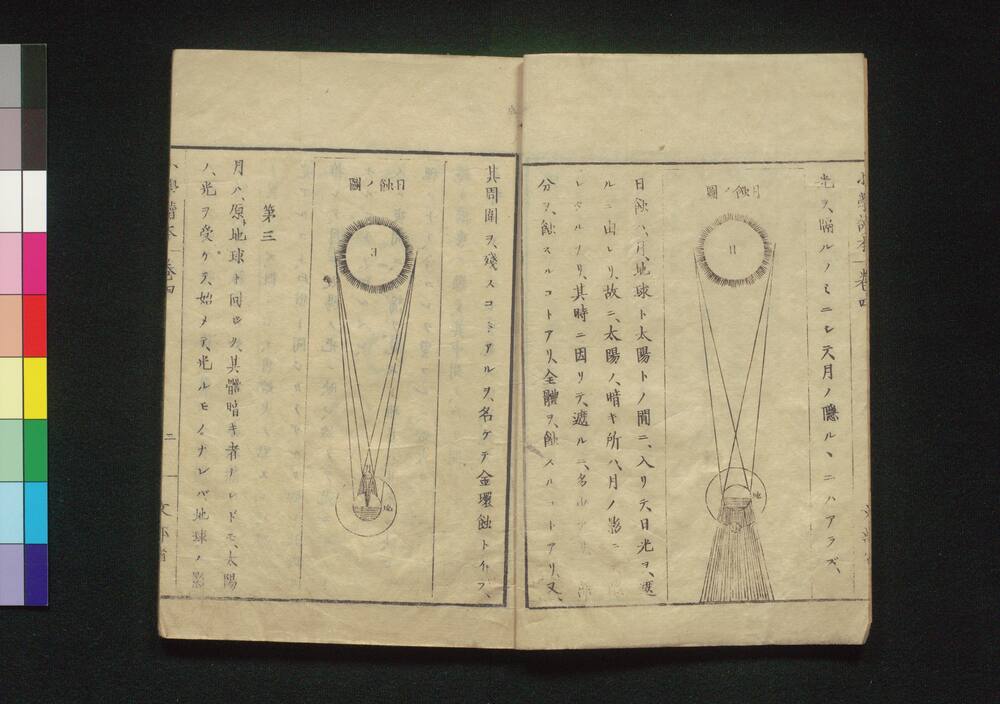 小學讀本 卷四
光ヲ、瞞ルノミニシテ月ノ隱ルヽニハアラズ、
月蝕ノ圖
日
地
日蝕ハ、月、地球ト太陽トノ間ニ、入リテ日光ヲ、遮
ルニ由レリ、故ニ、太陽ノ、暗キ所ハ、月ノ影ニ
其時ニ因リテ、遮ルニ、
分ヲ、蝕スルコトアリ、全體ヲ、蝕スルコトアリ、又、
其周圍ヲ、殘スコトアルヲ、名ケテ金環蝕トイフ、
日蝕ノ圖
日
地
第三
月ハ、原、地球ト同ジク、其體暗キ者ナレドモ、太陽
ノ、光ヲ受ケテ、始メテ、光ルモノナレバ、地球ノ影
小學讀本 卷四
二
文部省